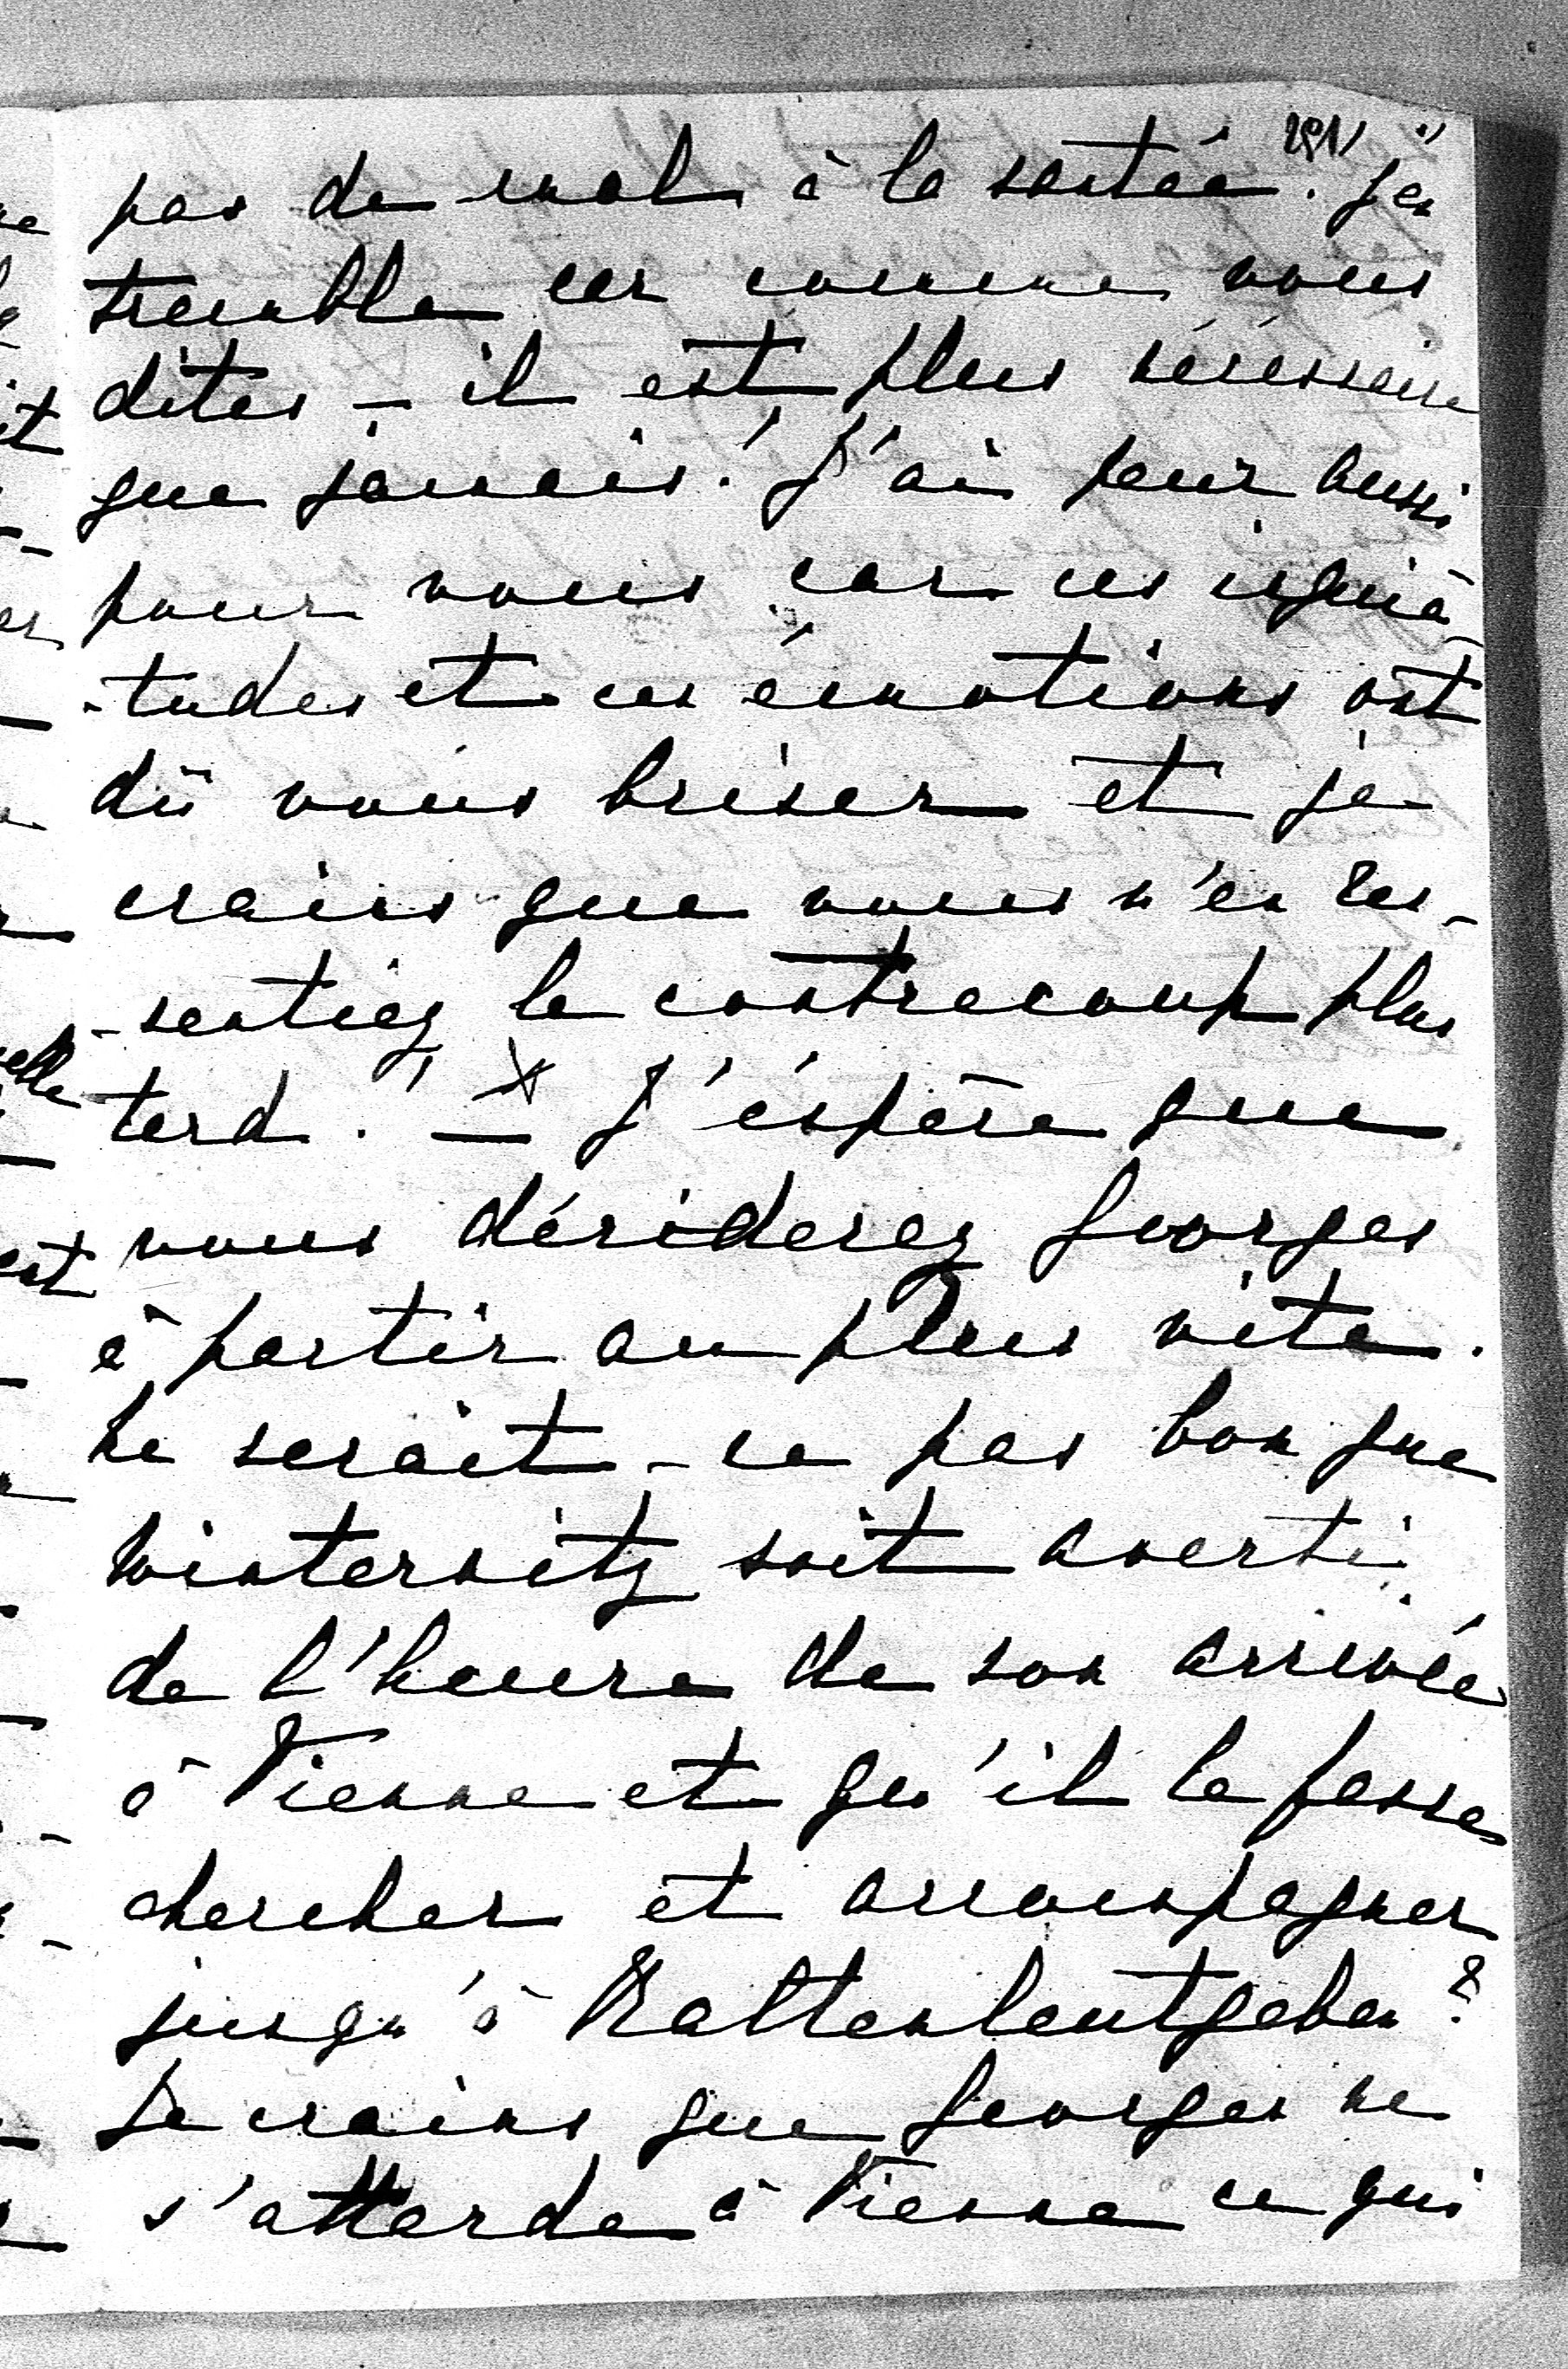 pas de mal à la santée. J'en
tremble car comme vous
dites – il est plus nécessaire
que jamais! J'ai peur aussi
pour vous car ces inquié-
-tudes et ces émotions ont
dû vous briser et je
crains que vous n'en res-
-sentiez le contrecoup plus
tard! – J'éspère que
vous dériderez Georges
à partir au plus vite.
Ne serait-ce pas bon que
Winternitz soit averti
de l'heure de son arrivée
à Vienne et qu'il le fasse
chercher et accompagner
jusqu'à Kaltenleutgeben?
Je crains que Georges ne
s'attarde à Vienne ce qui